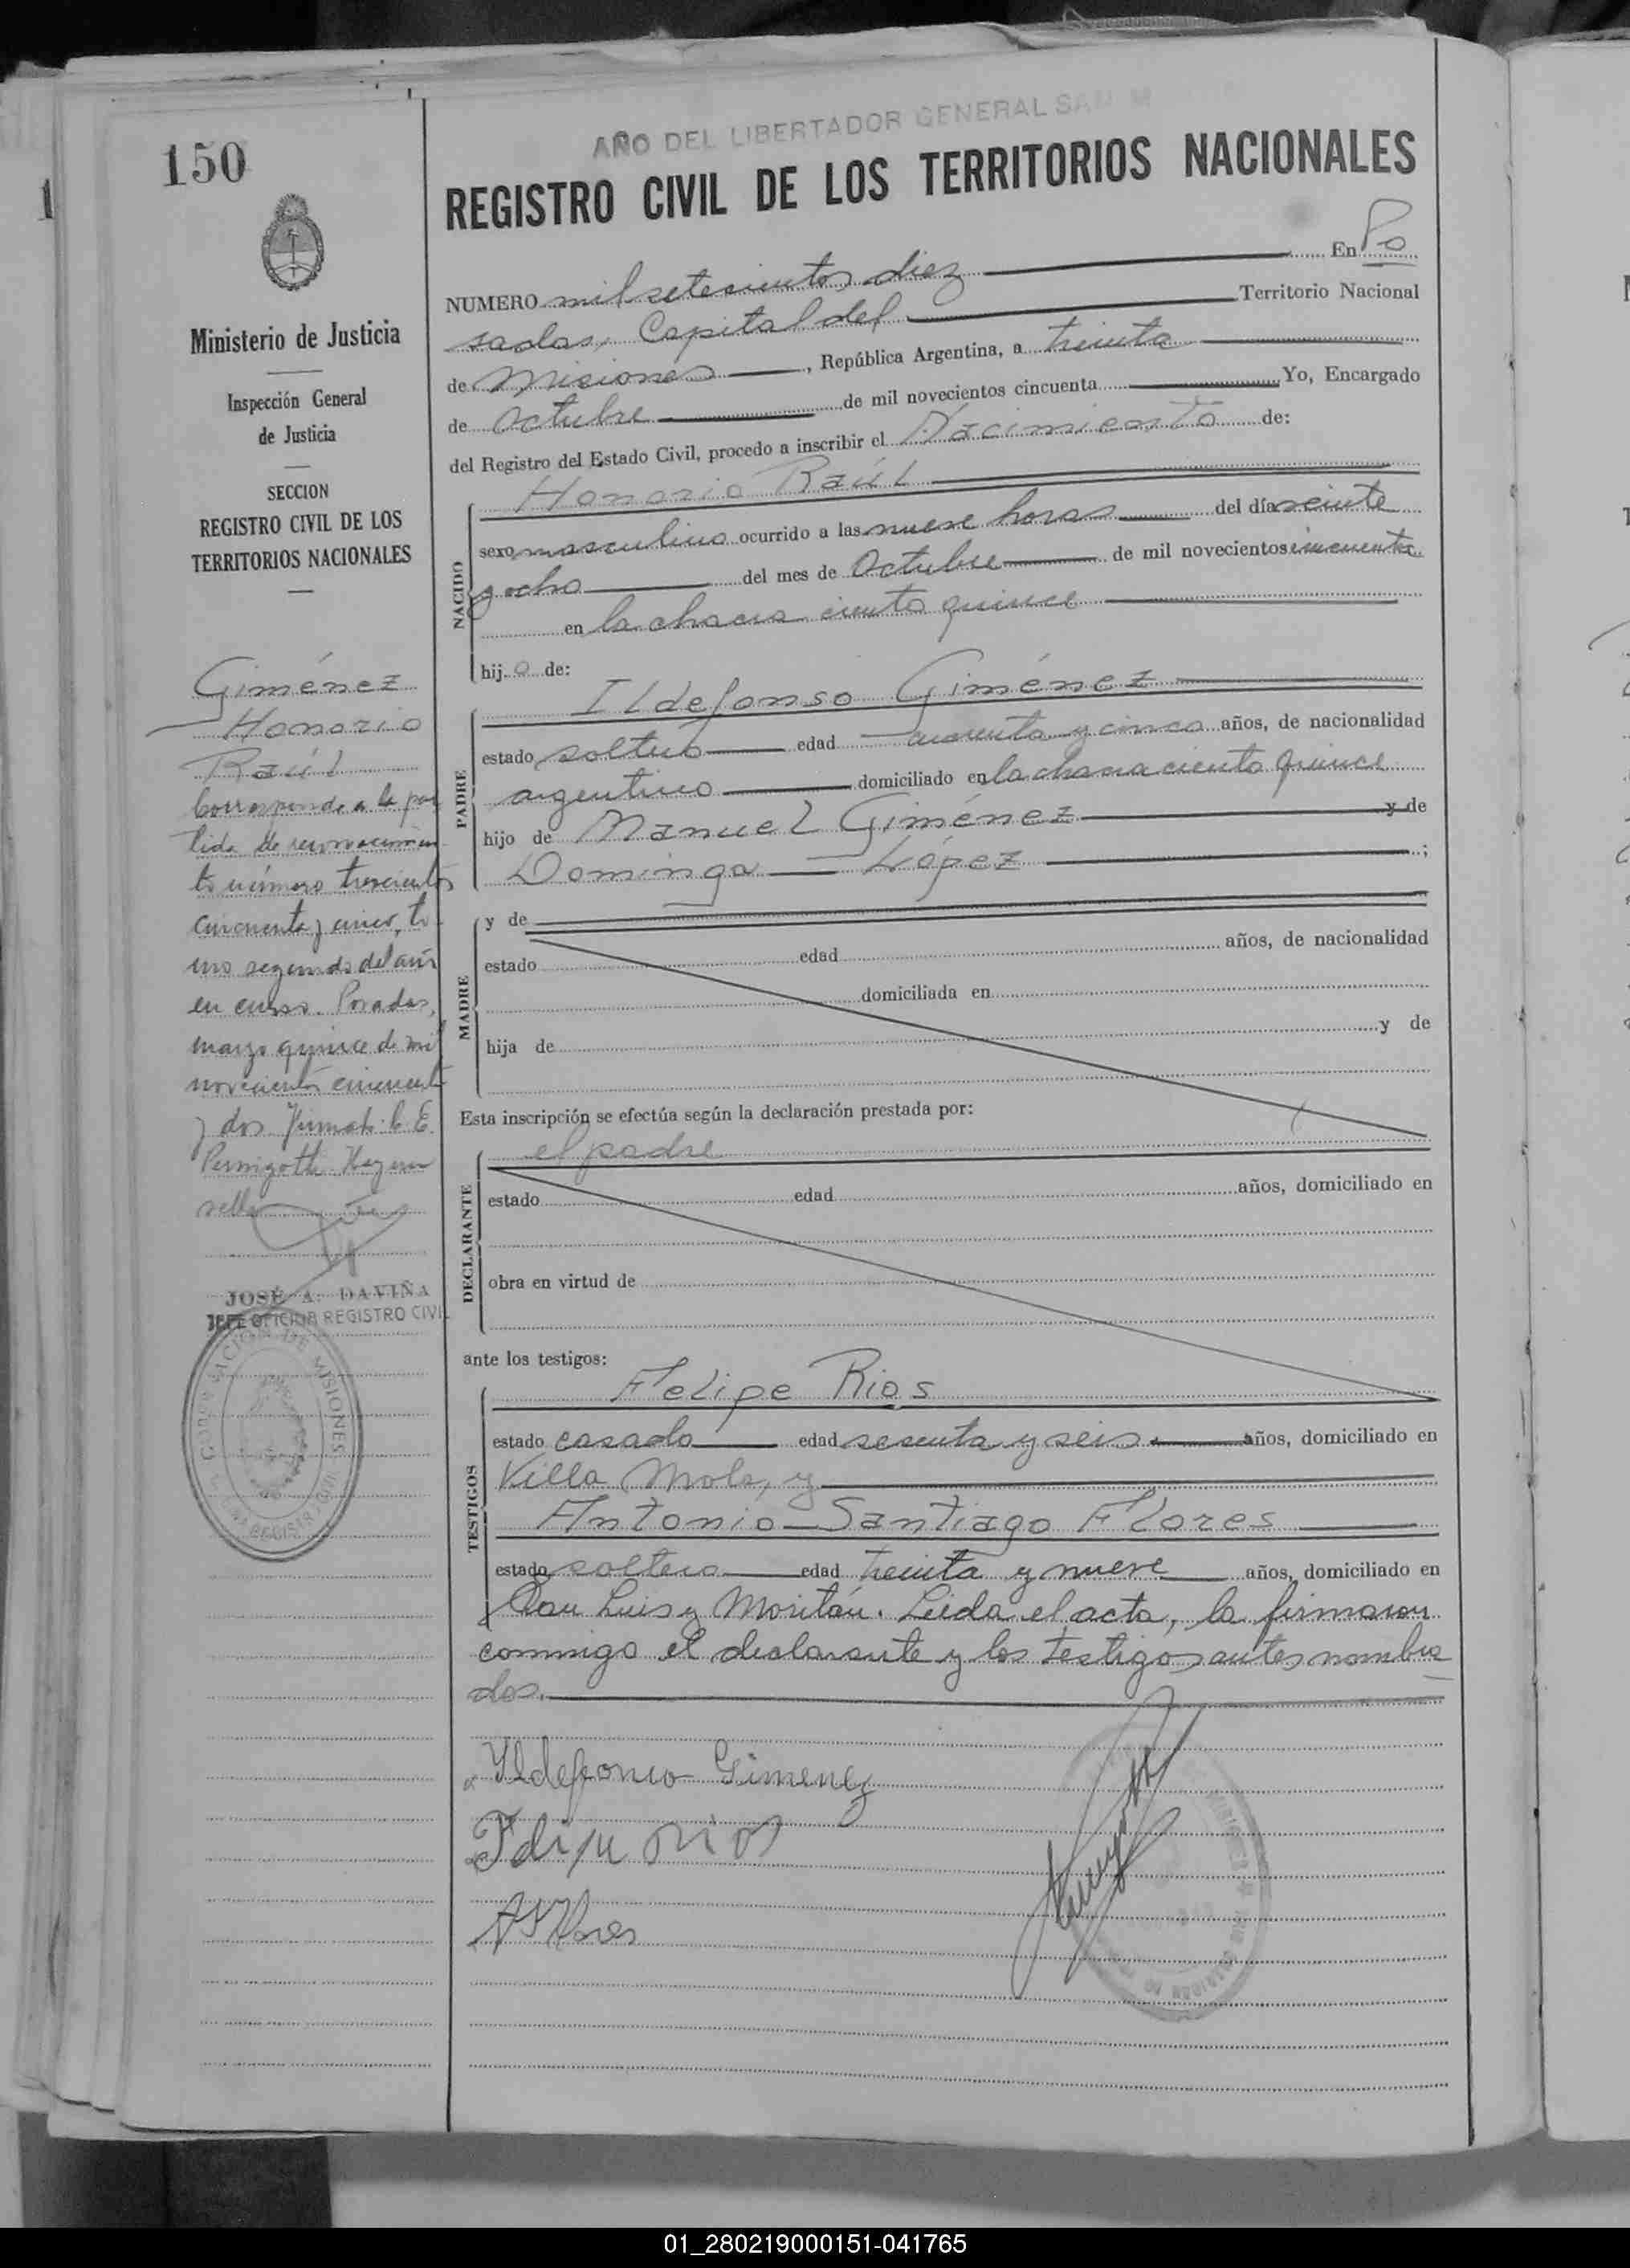 150
Ministerio de Justicia
Inspección General
de Justicia
SECCION
REGISTRO CIVIL DE LOS
TERRITORIOS NACIONALES
Giménez
Honorio
Raúl
Corresponde a la par
tida de reconocimien
to número trescientos
cincuenta y cinco, to
mo segundo del año
en curso. Posadas,
marzo quince de mil
novecientos cincuenta
y dos. Firmado: C. E.
Pernigotti. Hay un
sello
JOSÉ A. DAVIÑA
JEFE OFICINA REGISTRO CIVIL
AÑO DEL LIBERTADOR GENERAL SAN M
REGISTRO CIVIL DE LOS TERRITORIOS NACIONALES
NUMERO mil setecientos diez En Po
sadas, Capital del Territorio Nacional
de Misiones, República Argentina, a treinta
de Octubre de mil novecientos cincuenta Yo, Encargado
del Registro del Estado Civil, procedo a inscribir el Nacimiento de:
NACIDO
Honorio Raúl
sexo masculino ocurrido a las nueve horas del día veinte
y ocho del mes de Octubre de mil novecientos cincuenta
en la chacra ciento quince
hijo de:
PADRE
Ildefonso Giménez
estado soltero edad cuarenta y cinco años, de nacionalidad
argentino domiciliado en la chacra ciento quince
hijo de Manuel Giménez y de
Dominga López;
MADRE
y de
estado edad años, de nacionalidad
domiciliada en
hija de y de
Esta inscripción se efectúa según la declaración prestada por:
DECLARANTE
el padre
estado edad años, domiciliado en
obra en virtud de
ante los testigos:
TESTIGOS
Felipe Rios
estado casado edad sesenta y seis años, domiciliado en
Villa Mola, y
Antonio Santiago Flores
estado soltero edad treinta y nueve años, domiciliado en
San Luis y Moritán. Leida el acta, la firmaron
conmigo el declarante y los testigos antes nombra
dos.
Yldefonso Gimenez
Felipe Rios
A S Flores
01_280219000151-041765